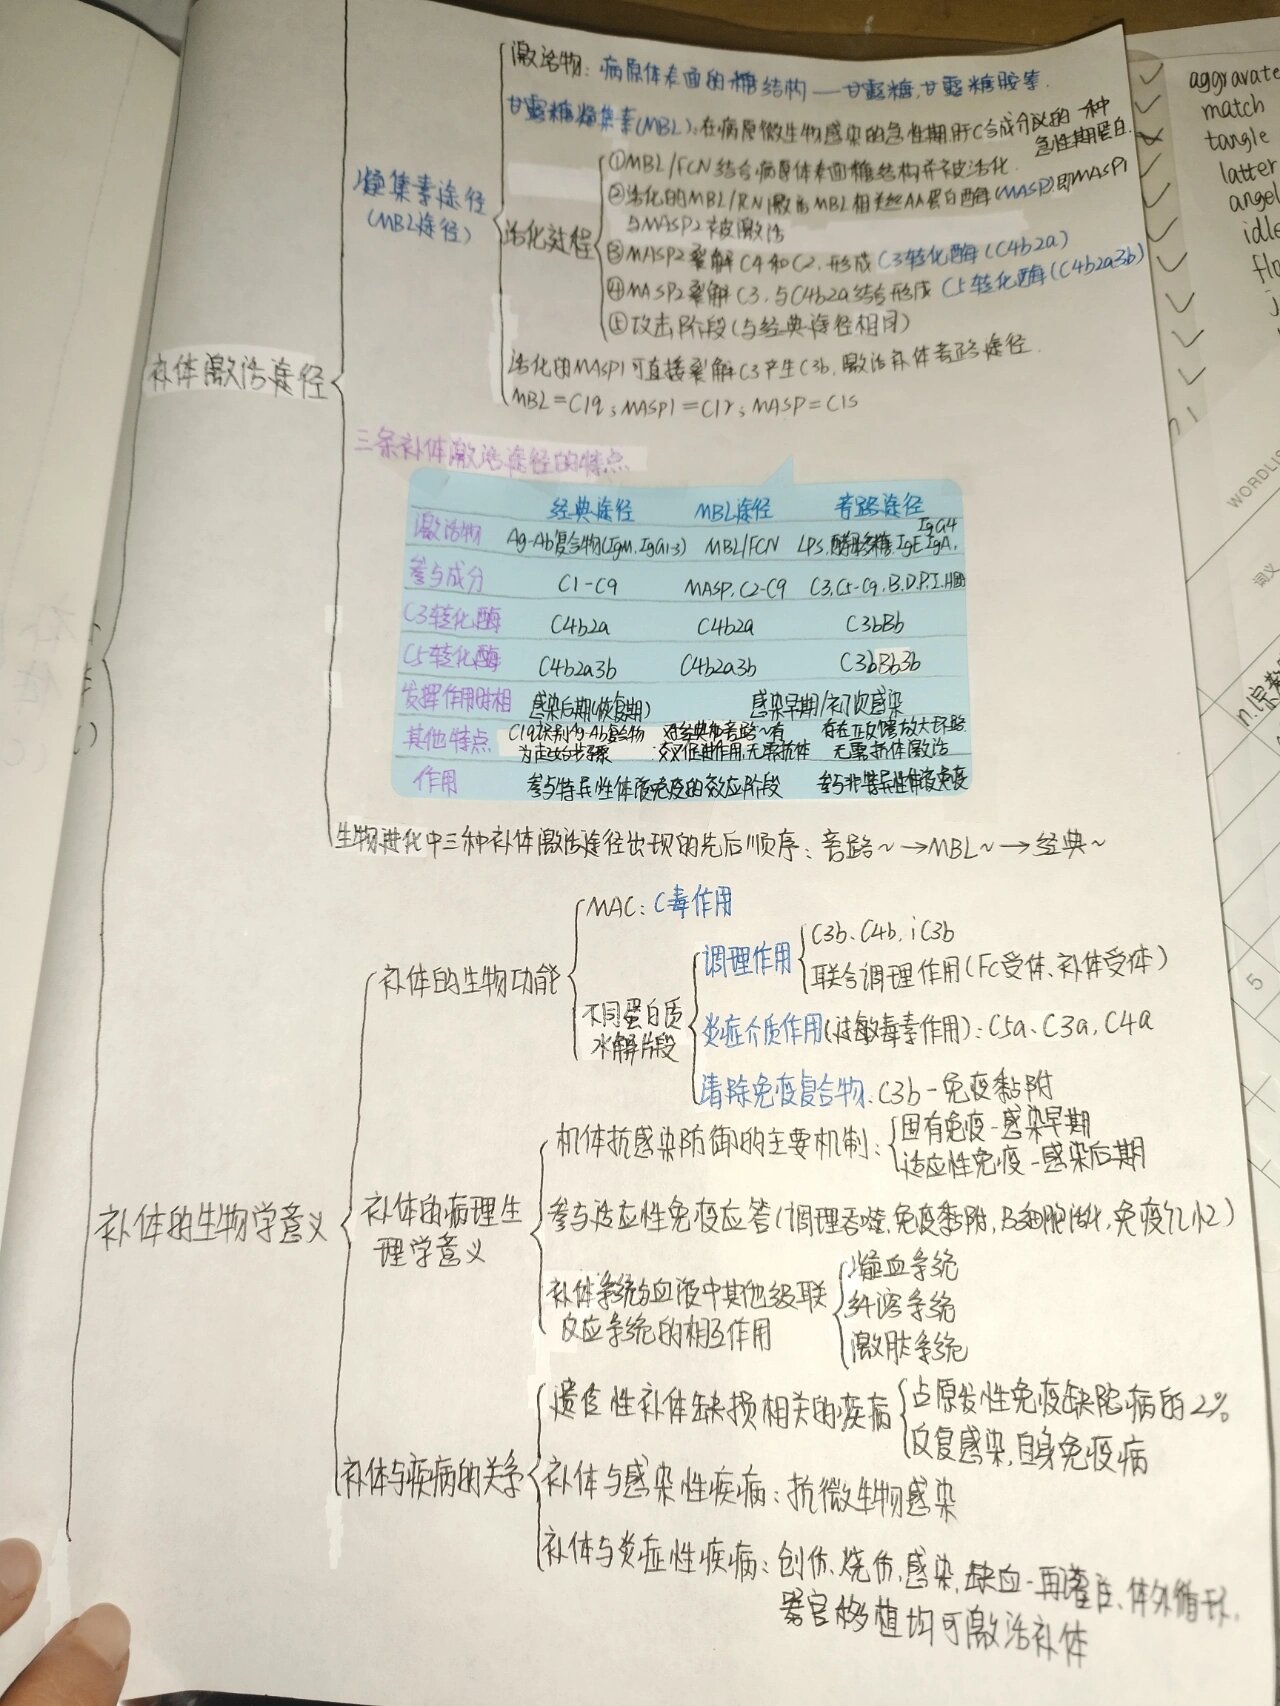 激活物：病原体表面的糖结构——甘露糖，甘露糖胺等.
甘露糖凝集素(MBL)：在病原微生物感染的急性期，肝C合成分泌的一种
急性期蛋白.
凝集素途径
(MBL途径)
活化过程
①MBL/FCN结合病原体表面糖结构并被活化.
②活化的MBL/FCN激活MBL相关丝AA蛋白酶(MASP),即MASP1
与MASP2被激活
③MASP2裂解C4和C2,形成C3转化酶(C4b2a)
④MASP2裂解C3,与C4b2a结合形成 C5转化酶(C4b2a3b)
⑤攻击阶段(与经典途径相同)
活化的MASP1可直接裂解C3产生C3b,激活补体旁路途径.
MBL=C1q;MASP1=C1r;MASP=C1s
补体激活途径
三条补体激活途径的特点
经典途径 MBL途径 旁路途径
激活物 Ag-Ab复合物(IgM,IgG1-3) MBL/FCN LPS,酵母多糖,IgE,IgA,IgG4
参与成分 C1-C9 MASP,C2-C9 C3,C5-C9,B,D,P,I,H因
C3转化酶 C4b2a C4b2a C3bBb
C5转化酶 C4b2a3b C4b2a3b C3bBb3b
发挥作用时相 感染后期(恢复期) 感染早期/初次感染
其他特点 C1q识别Ag-Ab复合物 对经典和旁路~有 存在正反馈放大环路
为起始步骤 交叉促进作用,无需抗体 无需抗体激活
作用 参与特异性体液免疫的效应阶段 参与非特异性体液免疫
生物进化中三种补体激活途径出现的先后顺序：旁路~→MBL~→经典~
补体的生物学意义
补体的生物功能
MAC：C毒作用
不同蛋白质
水解片段
调理作用
C3b、C4b,iC3b
联合调理作用(FC受体、补体受体)
炎症介质作用(过敏毒素作用)：C5a、C3a,C4a
清除免疫复合物.C3b-免疫黏附
补体的病理生
理学意义
机体抗感染防御的主要机制：
固有免疫-感染早期
适应性免疫-感染后期
参与适应性免疫应答(调理吞噬,免疫黏附,B细胞活化,免疫记忆)
补体系统与血液中其他级联
反应系统的相互作用
凝血系统
纤溶系统
激肽系统
补体与疾病的关系
遗传性补体缺损相关的疾病
占原发性免疫缺陷病的2%
反复感染,自身免疫病
补体与感染性疾病：抗微生物感染
补体与炎症性疾病：创伤、烧伤,感染,缺血-再灌注、体外循环,
器官移植均可激活补体
aggravate
match
tangle
latter
angel
idle
WORDLIS
词义
5